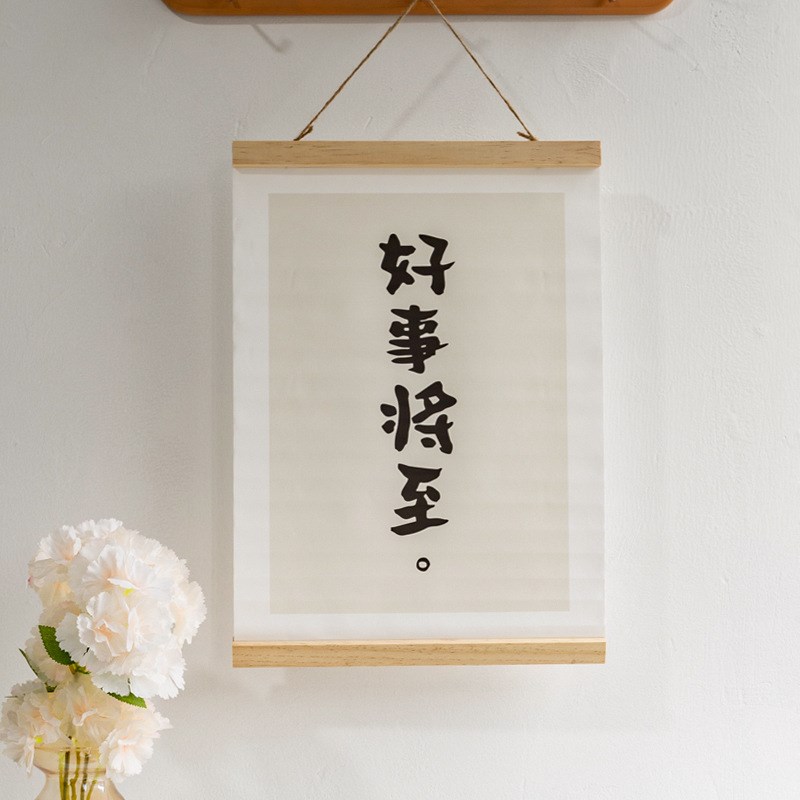 好事将至。